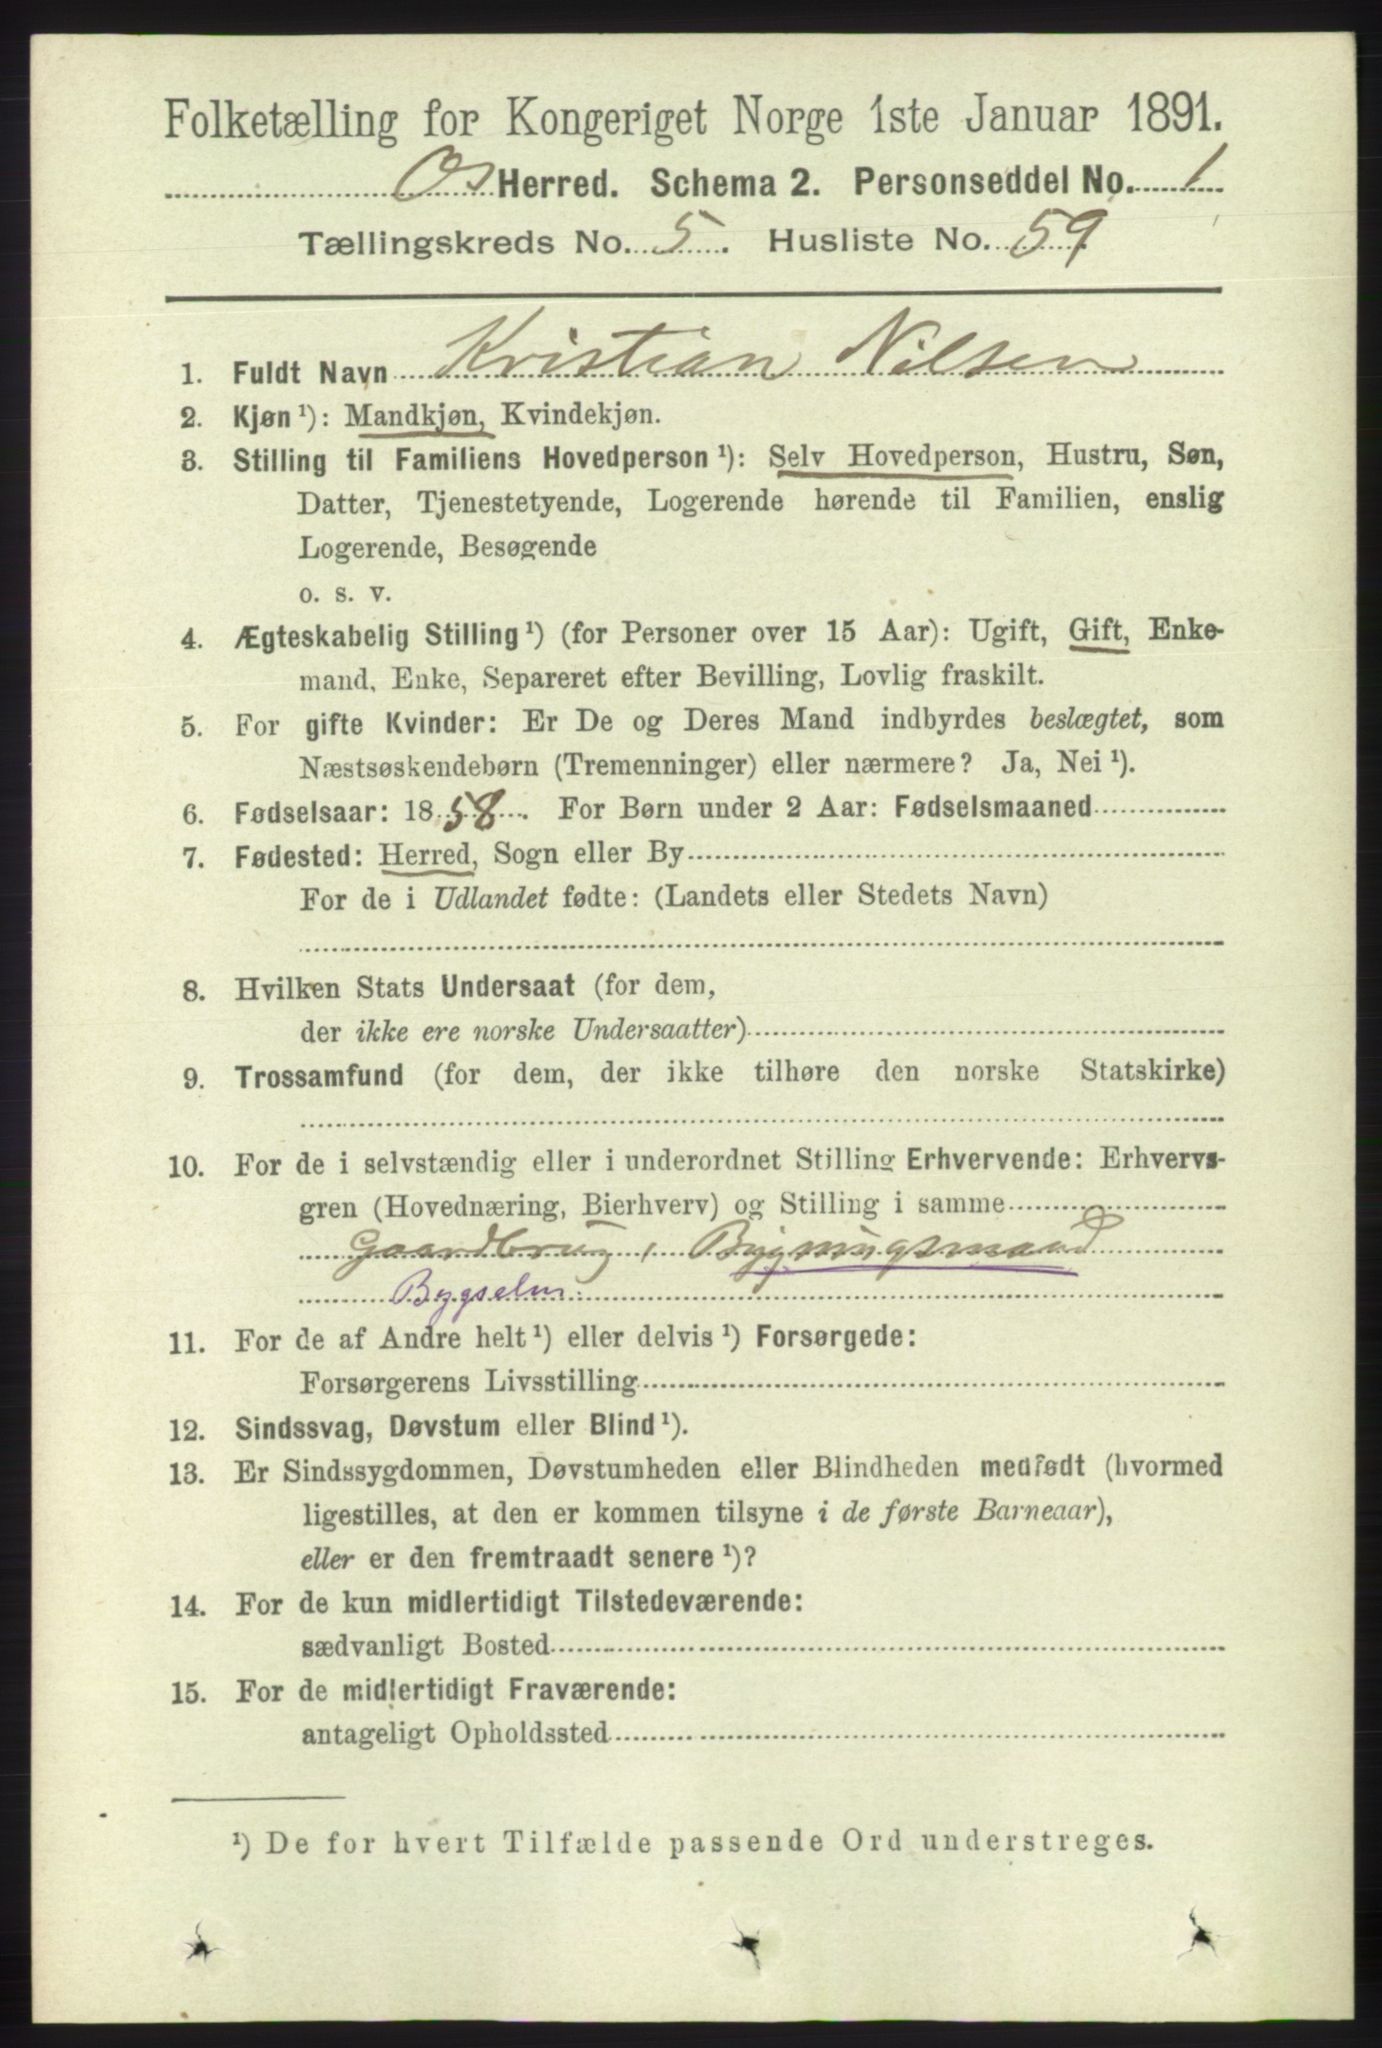 Folketælling for Kongeriget Norge 1ste Januar 1891.
Os Herred. Schema 2. Personseddel No. 1
Tællingskreds No. 5. Husliste No. 59
1. Fuldt Navn Kristian Nilsen
2. Kjøn¹): Mandkjøn, Kvindekjøn.
3. Stilling til Familiens Hovedperson¹): Selv Hovedperson, Hustru, Søn,
Datter, Tjenestetyende, Logerende hørende til Familien, enslig
Logerende, Besøgende
o. s. v.
4. Ægteskabelig Stilling¹) (for Personer over 15 Aar): Ugift, Gift, Enke-
mand, Enke, Separeret efter Bevilling, Lovlig fraskilt.
5. For gifte Kvinder: Er De og Deres Mand indbyrdes beslægtet, som
Næstsøskendebørn (Tremenninger) eller nærmere? Ja, Nei¹).
6. Fødselsaar: 1858. For Børn under 2 Aar: Fødselsmaaned
7. Fødested: Herred, Sogn eller By
For de i Udlandet fødte: (Landets eller Stedets Navn)
8. Hvilken Stats Undersaat (for dem,
der ikke ere norske Undersaatter)
9. Trossamfund (for dem, der ikke tilhøre den norske Statskirke)
10. For de i selvstændig eller i underordnet Stilling Erhvervende: Erhvervs-
gren (Hovednæring, Bierhverv) og Stilling i samme
Gaardbrug, Bygningsmand
Bygselm:
11. For de af Andre helt¹) eller delvis¹) Forsørgede:
Forsørgerens Livsstilling
12. Sindssvag, Døvstum eller Blind¹).
13. Er Sindssygdommen, Døvstumheden eller Blindheden medfødt (hvormed
ligestilles, at den er kommen tilsyne i de første Barneaar),
eller er den fremtraadt senere¹)?
14. For de kun midlertidigt Tilstedeværende:
sædvanligt Bosted
15. For de midlertidigt Fraværende:
antageligt Opholdssted
¹) De for hvert Tilfælde passende Ord understreges.